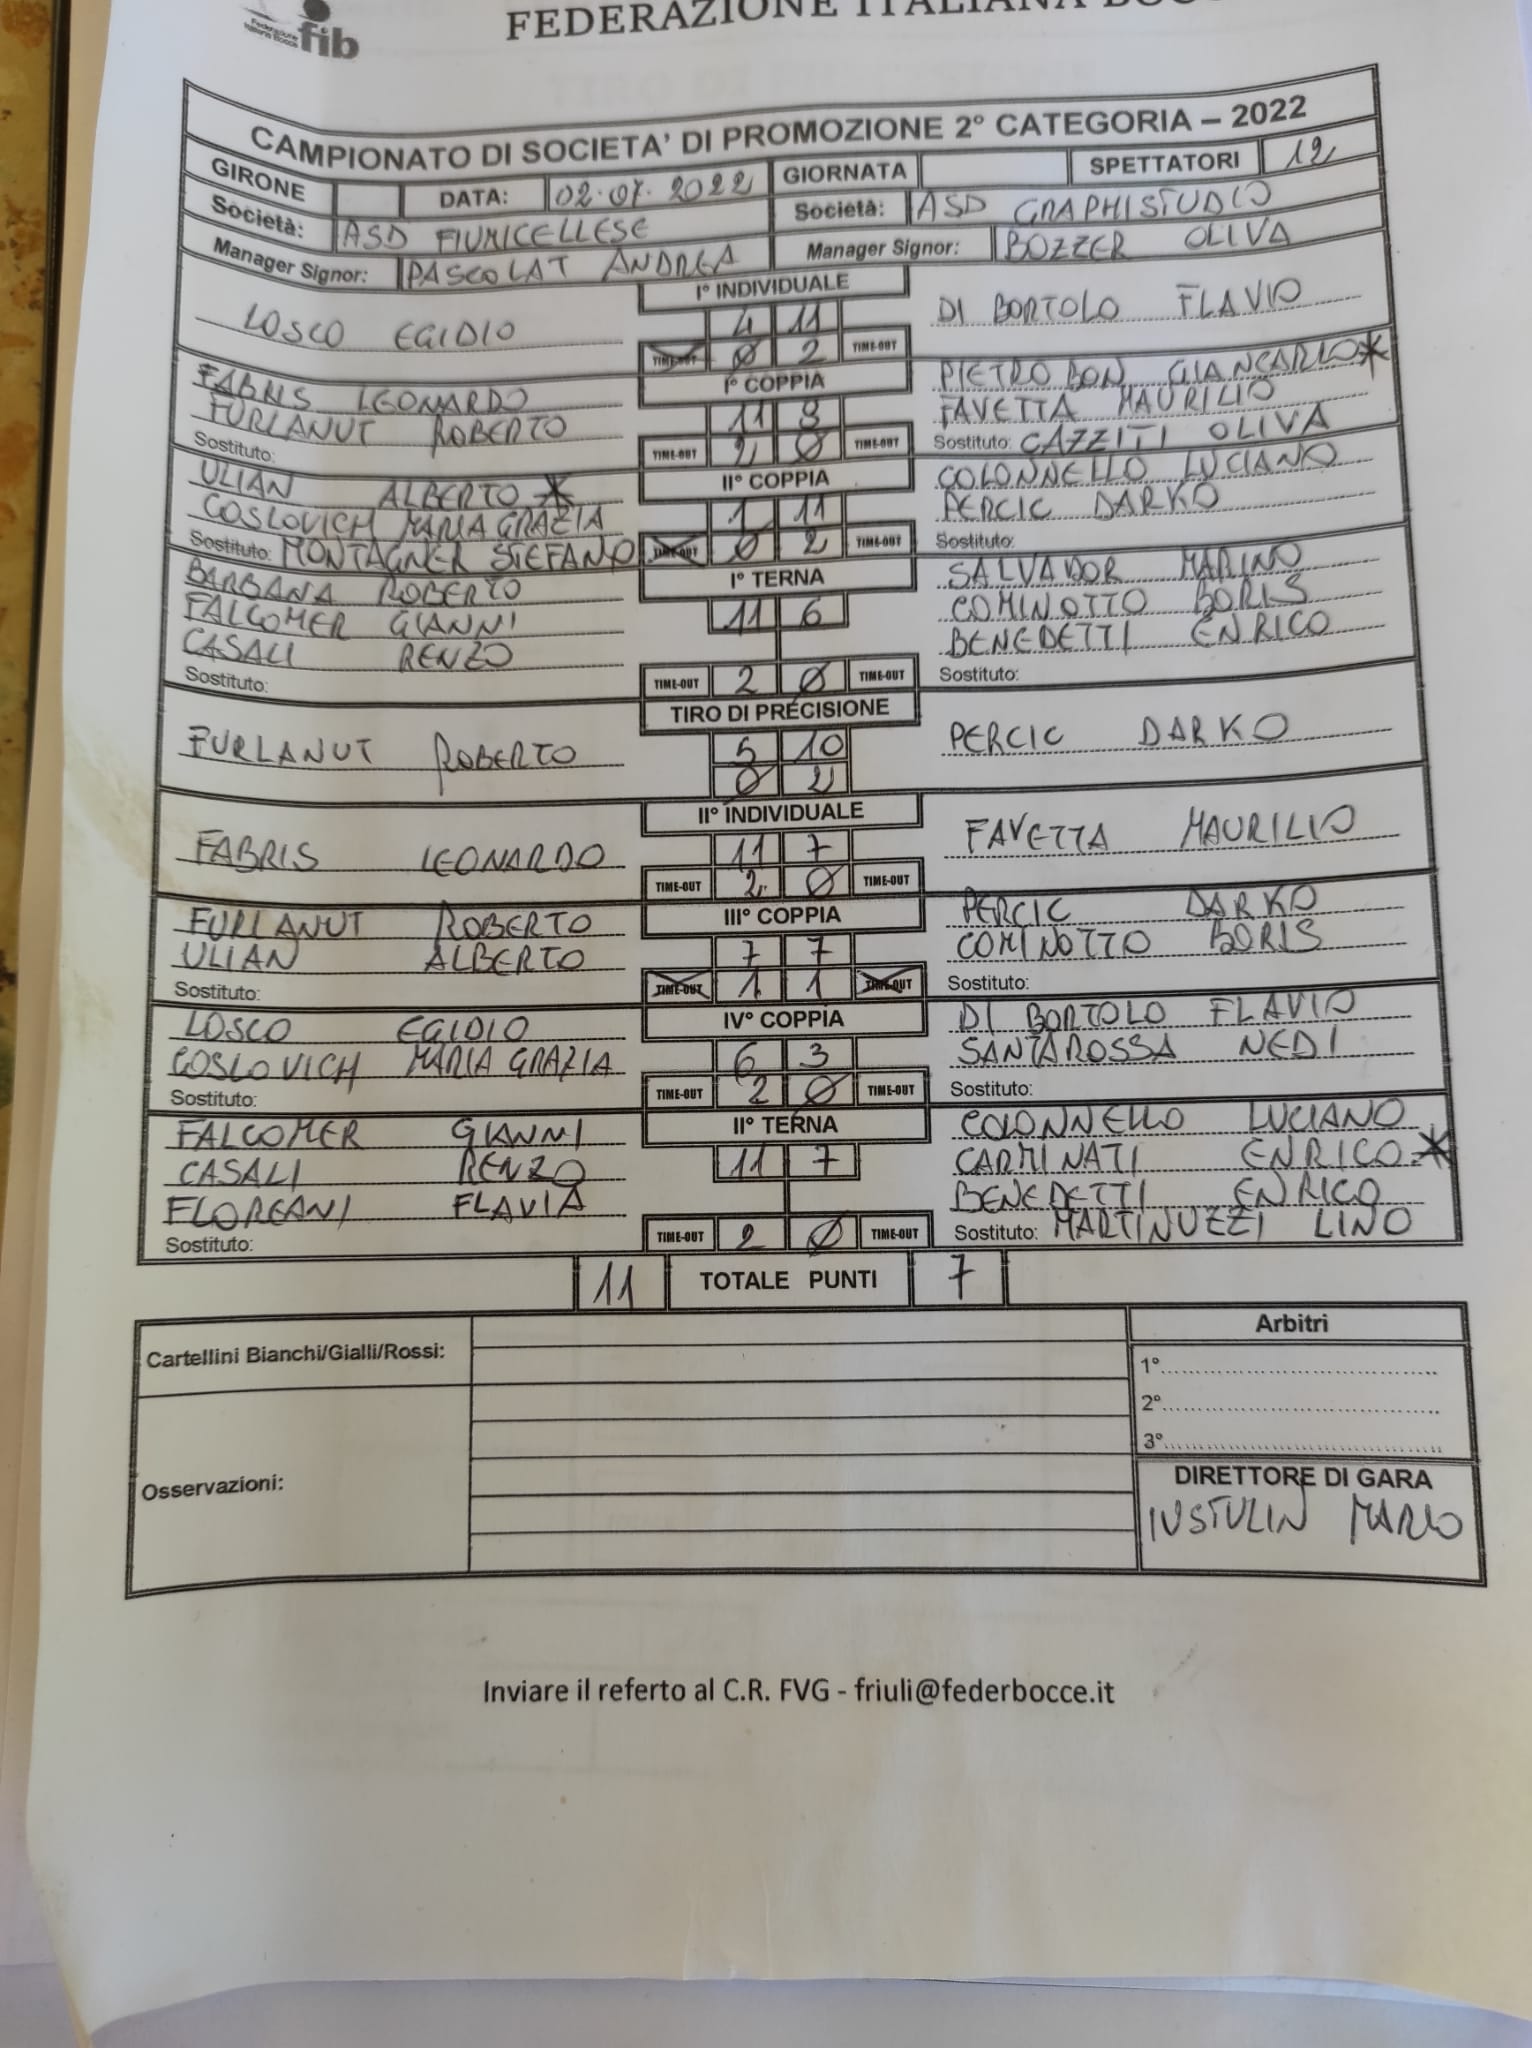 Federazione
Italiana Bocce
fib
FEDERAZIONE ITALIANA
CAMPIONATO DI SOCIETA' DI PROMOZIONE 2° CATEGORIA – 2022
GIRONE DATA: 02.07.2022 GIORNATA SPETTATORI 12
Società: ASD FIUMICELLESE Società: ASD GRAPHISTUDIO
Manager Signor: PASCOLAT ANDREA Manager Signor: BOZZER OLIVA
I° INDIVIDUALE
LOSCO EGIDIO 4 11 DI BORTOLO FLAVIO
TIME-OUT 0 2 TIME-OUT
I° COPPIA
FABRIS LEONARDO PIETROBON GIANCARLO*
FURLANUT ROBERTO 11 8 FAVETTA MAURILIO
Sostituto: TIME-OUT 2 0 TIME-OUT Sostituto: CAZZITI OLIVA
II° COPPIA
ULIAN ALBERTO * COLONNELLO LUCIANO
COSLOVICH MARIA GRAZIA 1 11 PERCIC DARKO
Sostituto: MONTAGNER STEFANO TIME-OUT 0 2 TIME-OUT Sostituto:
I° TERNA
BARBANA ROBERTO SALVADOR MARINO
FALCOMER GIANNI 11 6 COMINOTTO BORIS
CASALI RENZO BENEDETTI ENRICO
Sostituto: TIME-OUT 2 0 TIME-OUT Sostituto:
TIRO DI PRECISIONE
FURLANUT ROBERTO 5 10 PERCIC DARKO
0 2
II° INDIVIDUALE
FABRIS LEONARDO 11 7 FAVETTA MAURILIO
TIME-OUT 2 0 TIME-OUT
III° COPPIA
FURLANUT ROBERTO PERCIC DARKO
ULIAN ALBERTO 7 7 COMINOTTO BORIS
Sostituto: TIME-OUT 1 1 TIME-OUT Sostituto:
IV° COPPIA
LOSCO EGIDIO DI BORTOLO FLAVIO
COSLOVICH MARIA GRAZIA 6 3 SANTAROSSA NEDI
Sostituto: TIME-OUT 2 0 TIME-OUT Sostituto:
II° TERNA
FALCOMER GIANNI COLONNELLO LUCIANO
CASALI RENZO 11 7 CARMINATI ENRICO *
FLOREANI FLAVIA BENEDETTI ENRICO
Sostituto: TIME-OUT 2 0 TIME-OUT Sostituto: MARTINUZZI LINO
11 TOTALE PUNTI 7
Cartellini Bianchi/Gialli/Rossi: Arbitri
1°
2°
3°
Osservazioni: DIRETTORE DI GARA
IUSTULIN MARIO
Inviare il referto al C.R. FVG - friuli@federbocce.it